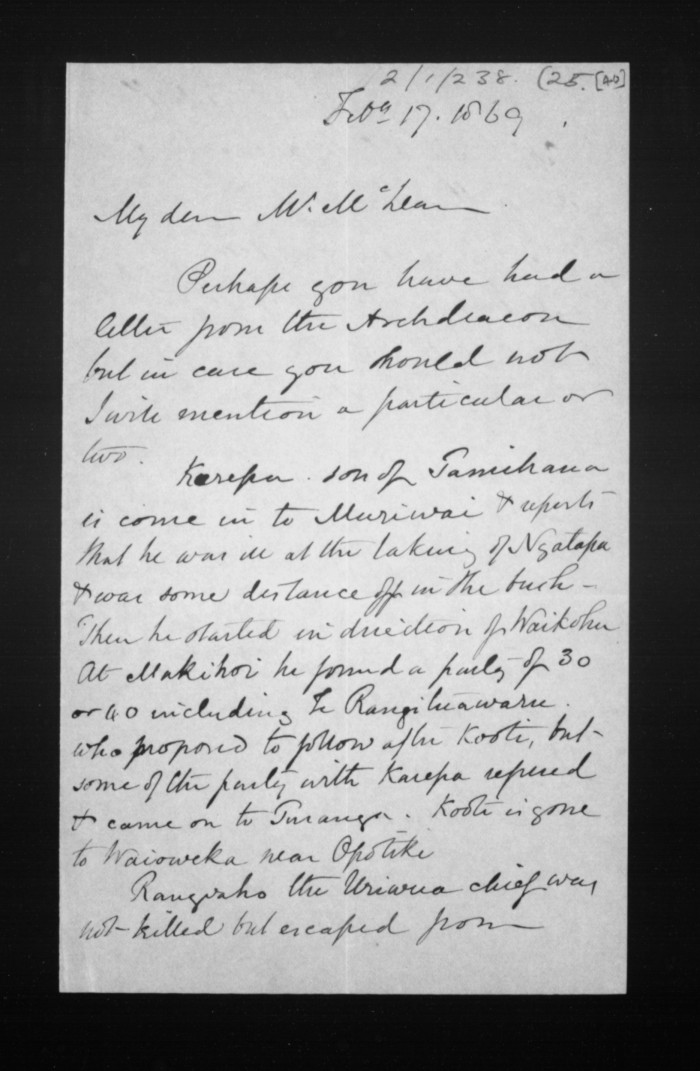 2/1/238. (25. [AD]
Feby 17. 1869.
My dear Mr. McLean
Perhaps you have had a
letter from the Archdeacon
but in case you should not
I will mention a particular or
two.
Karepa. son of Tamihana
is come in to Muriwai & reports
that he was ill at the taking of Ngatapa
& was some distance off in the bush -
Then he started in direction of Waikohu
At Makihoi he found a party of 30
or 40 including Te Rangihuawaru.
who proposed to follow after Kooti, but
some of the party with Karepa refused
& came on to Turanga. Kooti is gone
to Waioweka near Opotiki
the Uriwera chief was
not killed but escaped from